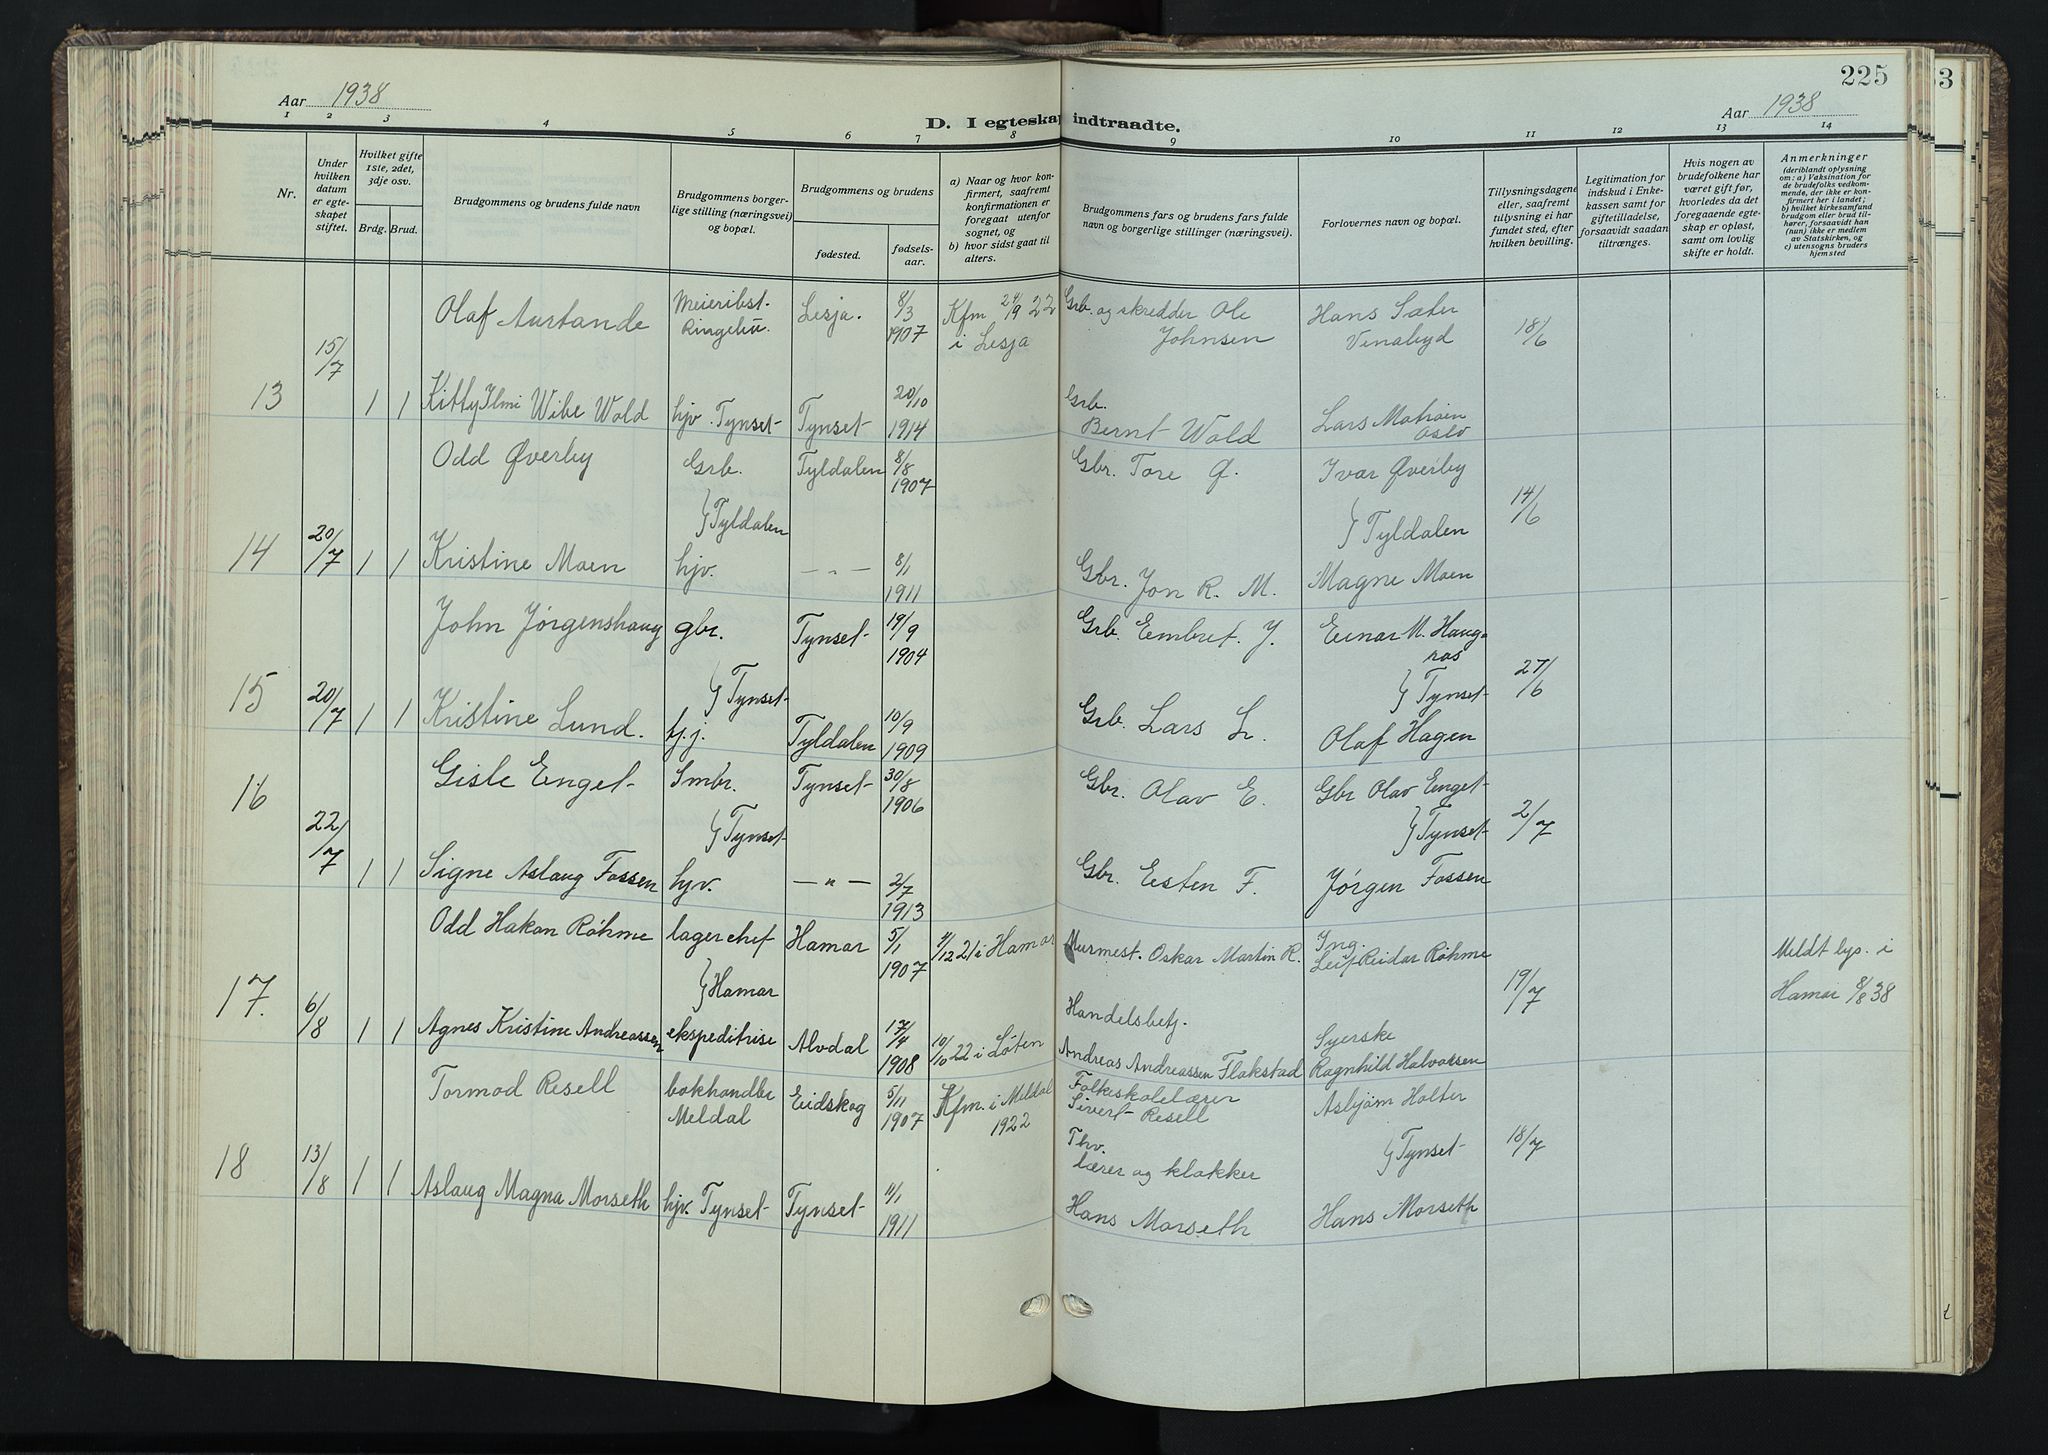 225
3
Aar 1938
D. I egteskap indtraadte.
Aar 1938
1 2 3 4 5 6 7 8 9 10 11 12 13 14
Nr.
Under hvilken datum er egteskapet stiftet.
Hvilket gifte 1ste, 2det, 3dje osv.
Brdg. Brud.
Brudgommens og brudens fulde navn
Brudgommens borgerlige stilling (næringsvei) og bopæl.
Brudgommens og brudens
fødested.
fødselsaar.
a) Naar og hvor konfirmert, saafremt konfirmationen er foregaat utenfor sognet, og
b) hvor sidst gaat til alters.
Brudgommens fars og brudens fars fulde navn og borgerlige stillinger (næringsvei).
Forlovernes navn og bopæl.
Tillysningsdagene eller, saafremt tillysning ei har fundet sted, efter hvilken bevilling.
Legitimation for indskud i Enkekassen samt for giftetilladelse, forsaavidt saadan tiltrænges.
Hvis nogen av brudefolkene har været gift før, hvorledes da det foregaaende egteskap er opløst, samt om lovlig skifte er holdt.
Anmerkninger (deriblandt oplysning om: a) Vaksination for de brudefolks vedkommende, der ikke er konfirmert her i landet; b) hvilket kirkesamfund brudgom eller brud tilhører, forsaavidt han (hun) ikke er medlem av Statskirken, og c) utensogns bruders hjemsted
Olaf Austande Meieribst. Ringebu. Lesja. 8/3 1907 Kfm 24/9 22 i Lesja Grb. og skredder Ole Johnsen Hans Sæter Venabyd 18/6
13 15/7 1 1 Kitty Ilmi Wibe Wold hjv. Tynset Tynset 20/10 1914 Grb. Bernt Wold Lars Oslo
Odd Øverby Grb. Tyldalen 8/8 1907 Gbr. Tore Ø. Ivar Øverby
} Tyldalen } Tyldalen 14/6
14 20/7 1 1 Kristine Moen hjv. — " — 8/1 1911 Gbr. Jon R. M. Magne Moen
John Jørgenshaug gbr. Tynset 19/9 1904 Grb. Embret. J. Einar M. Haugras
} Tynset } Tynset 27/6
15 20/7 1 1 Kristine Lund. hj. Tyldalen 10/9 1909 Grb. Lars L. Olaf Hagen
16 Gisle Enget Smbr. Tynset 30/8 1906 Gbr. Olav E. Gbr Olav Enget
22/7 } Tynset } Tynset 2/7
1 1 Signe Aslaug Fossen hjv. — " — 2/7 1913 Gbr. Eisten F. Jørgen Fossen
Odd Hakon Röhme lagerchef Hamar 5/1 1907 4/12 21 i Hamar Murmest. Oskar Martin R. Ing. Leif Reidar Röhme Meldt lys. i
17. } Hamar 19/7 Hamar 8/8 38
6/8 1 1 Agnes Kristine Andreassen ekspeditrise Alvdal 17/4 1908 10/10 22 i Løten Handelsbetj. Andreas Andreassen Flakstad Syerske Ragnhild Halvorsen
Tormod Resell bokhandler Meldal Eidskog 5/11 1907 Kfm. i Meldal 1922 Folkeskolelærer Sivert Resell Asbjørn Holter
} Tynset 18/7
18 13/8 1 1 Aslaug Magna Morseth hjv. Tynset Tynset 4/1 1911 Thv. lærer og klokker Hans Morseth Hans Morseth